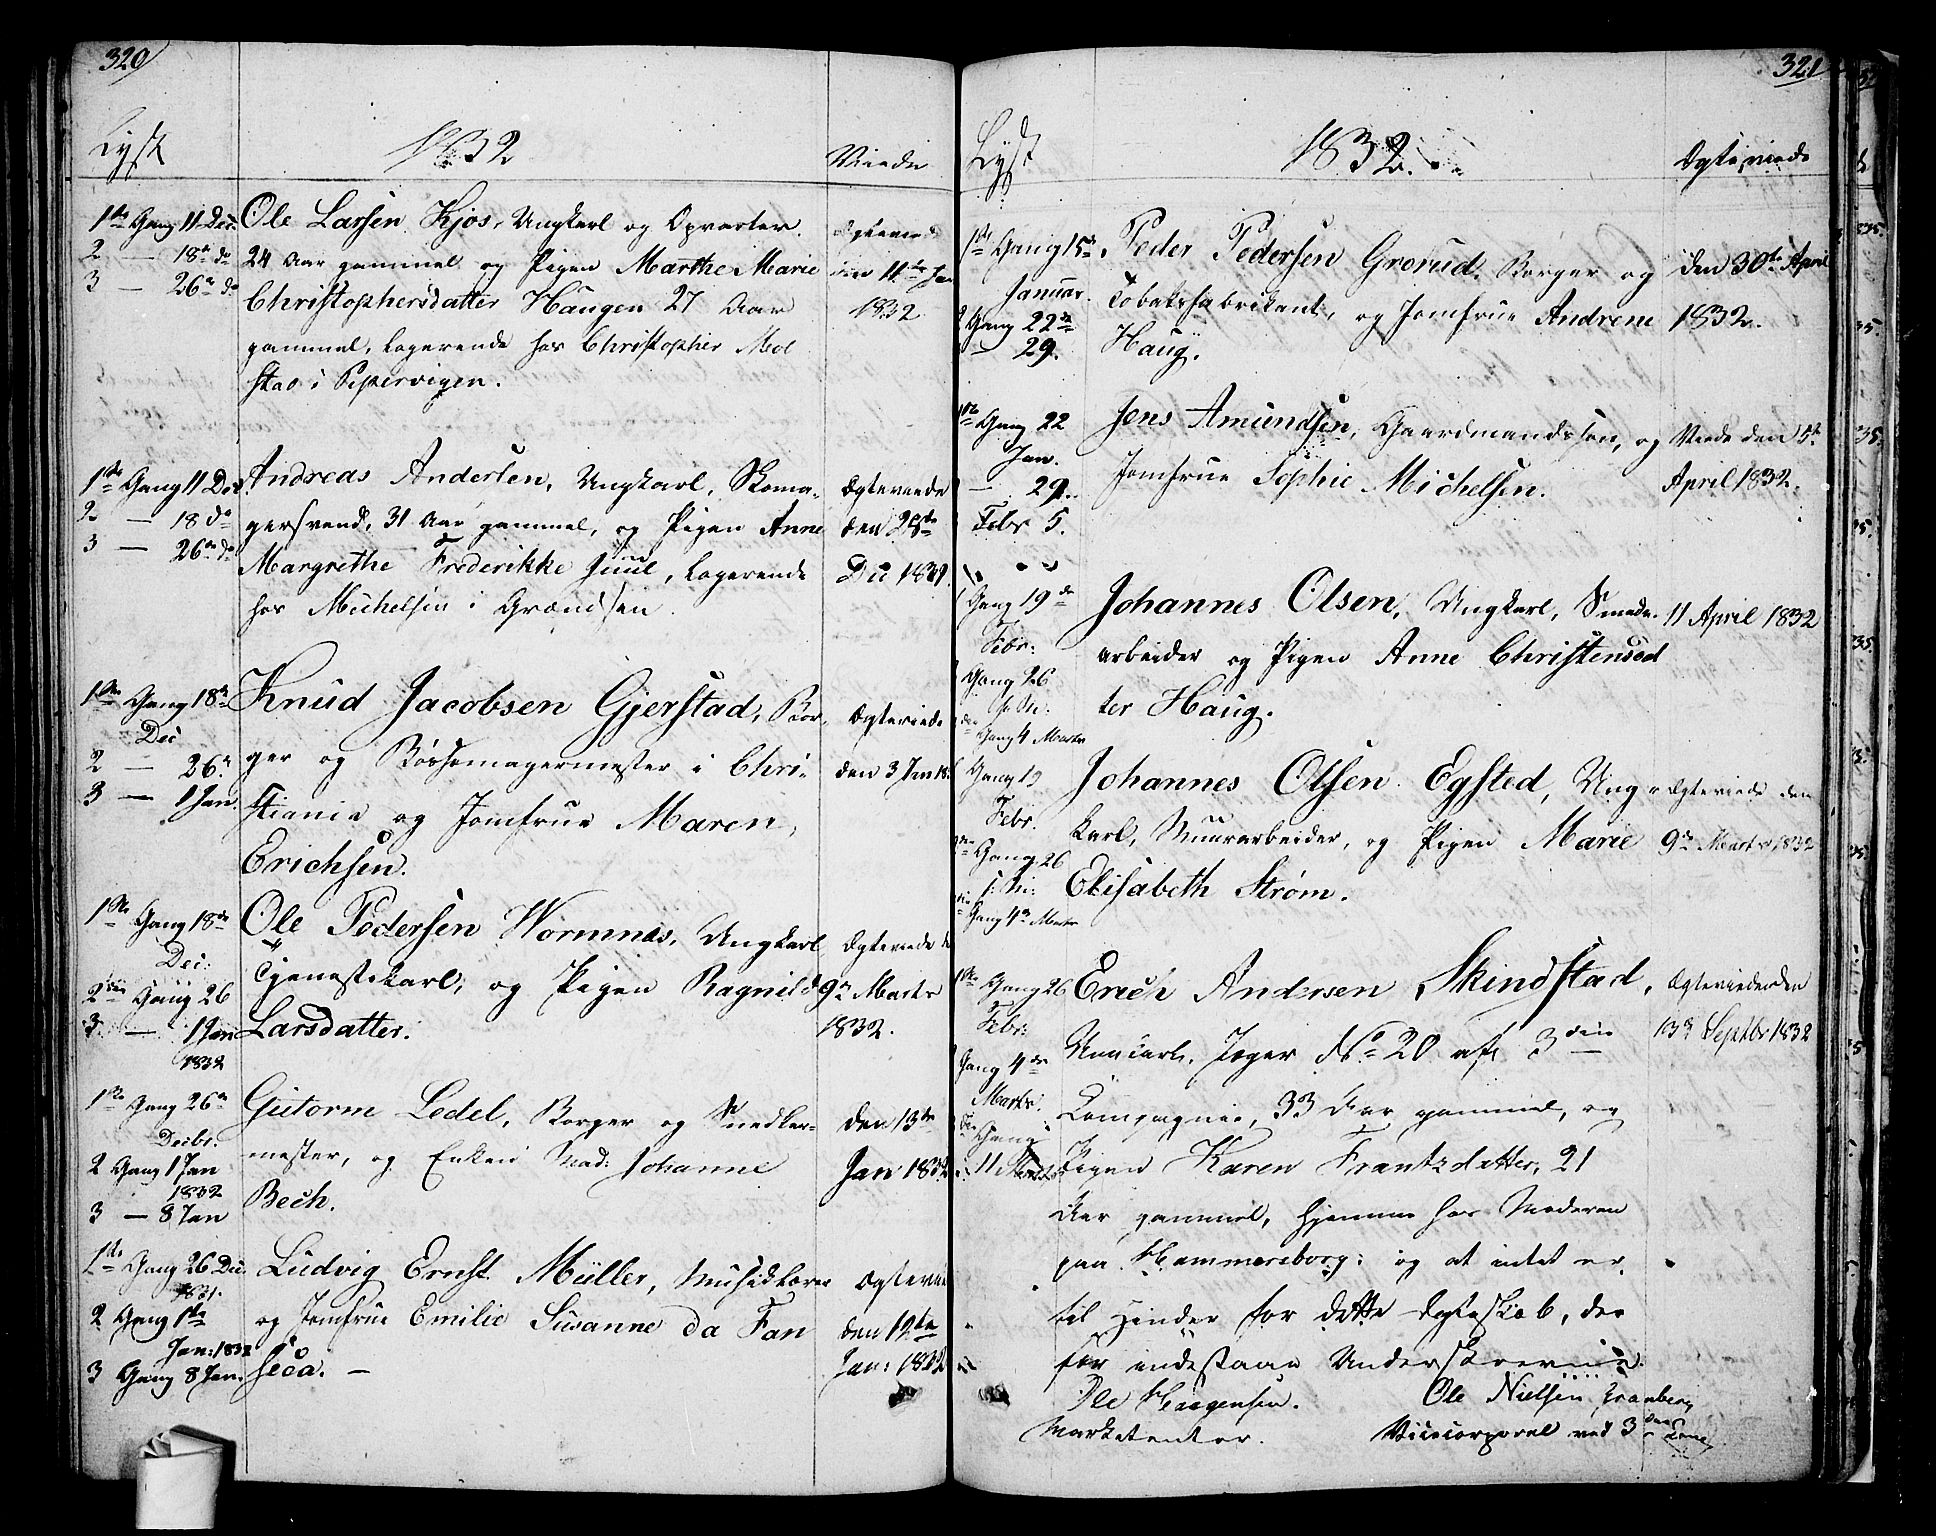 320
Lyst
1832
Viede
1ste Gang 11 Dec:
2 — 18de do
3 — 26de do
Ole Larsen Kjos, Ungkarl og Opvarter.
24 Aar gammel og Pigen Marthe Marie
Christophersdatter Haugen 27 Aar
gammel, logerende hos Christopher Mol
stad i Pipervigen.
Ægteviede
den 11te Jan
1832
1ste Gang 11 Dec
2 — 18 do
3 — 26de do
Andreas Andersen, Ungkarl, Skoma-
gersvend, 31 Aar gammel, og Pigen Anne
Margrethe Frederikke Juul, logerende
hos Michelsen i Grændsen
Ægteviede
den 28de
Dec 1831.
1ste Gang 18de
Dec
2 — 26de
3 — 1 Jan.
Knud Jacobsen Gjerstad, Bor-
ger og Bøssemagermester i Chri-
stiania og Jomfrue Maren
Erichsen.
Ægteviede
den 3 Jan 18
1ste Gang 18de
Dec:
2den Gang 26
3 — 1 Jan
1832
Ole Pedersen Wormnæs, Ungkarl
Tjenestekarl, og Pigen Ragnild
Larsdatter.
Ægteviede
9de Marts
1832.
1ste Gang 26de
Decbr.
2 Gang 1 Jan
1832
3 — 8 Jan
Gutorm Ledel, Borger og Snedker-
mester, og Enken Mad: Johanne
Bech.
den 13de
Jan 1832
1ste Gang 26 Dec:
1831.
2 Gang 1ste
Jan: 1832
3 Gang 8 Jan.
Ludvig Ernst Müller, Musiklærer
og Jomfrue Emilie Susanne da Fon
seca. —
Ægtevie
den 12te
Jan: 1832
321
Lyst
1832.
Ægteviede
1ste Gang 15de
Januar.
2 Gang 22de
— 29.
Peder Pedersen Grorud, Borger og
Tobaksfabrikant, og Jomfrue Andrene
Haug.
den 30te April
1832.
1ste Gang 22
Jan.
— 29.
Febr 5.
Jens Amundsen, Gaardmandssøn, og
Jomfrue Sophie Michelsen.
Viede den 5te
April 1832.
Gang 19de
Febr:
Gang 26
Gang 4 Marts
Johannes Olsen, Ungkarl, Smede-
arbeider og Pigen Anne Christensdat
ter Haug.
11 April 1832
Gang 19
Febr.
Gang 26
Gang 4de Marts
Johannes Olsen Egsted, Ung-
karl, Muurarbeider, og Pigen Marie
Elisabeth Strøm.
Ægteviede den
9de Marts 1832
1ste Gang 26
Febr:
Gang 4de
Marts.
Gang
11 Marts
Erich Andersen Skindstad,
Ungkarl, Jæger No 20 af 3die
Compagnie, 33 Aar gammel, og
Pigen Karen Frantzdatter, 21
Aar gammel, hjemme hos Moderen
paa Hammersborg: og at intet er
til Hinder for dette Ægteskab, der
for indestaae Underskrevne.
Ole Haagensen.
Marketenter.
Ole Nielsen Granberg
Vicecorporal ved 3die Comp
Ægteviede den
13de Septbr 1832